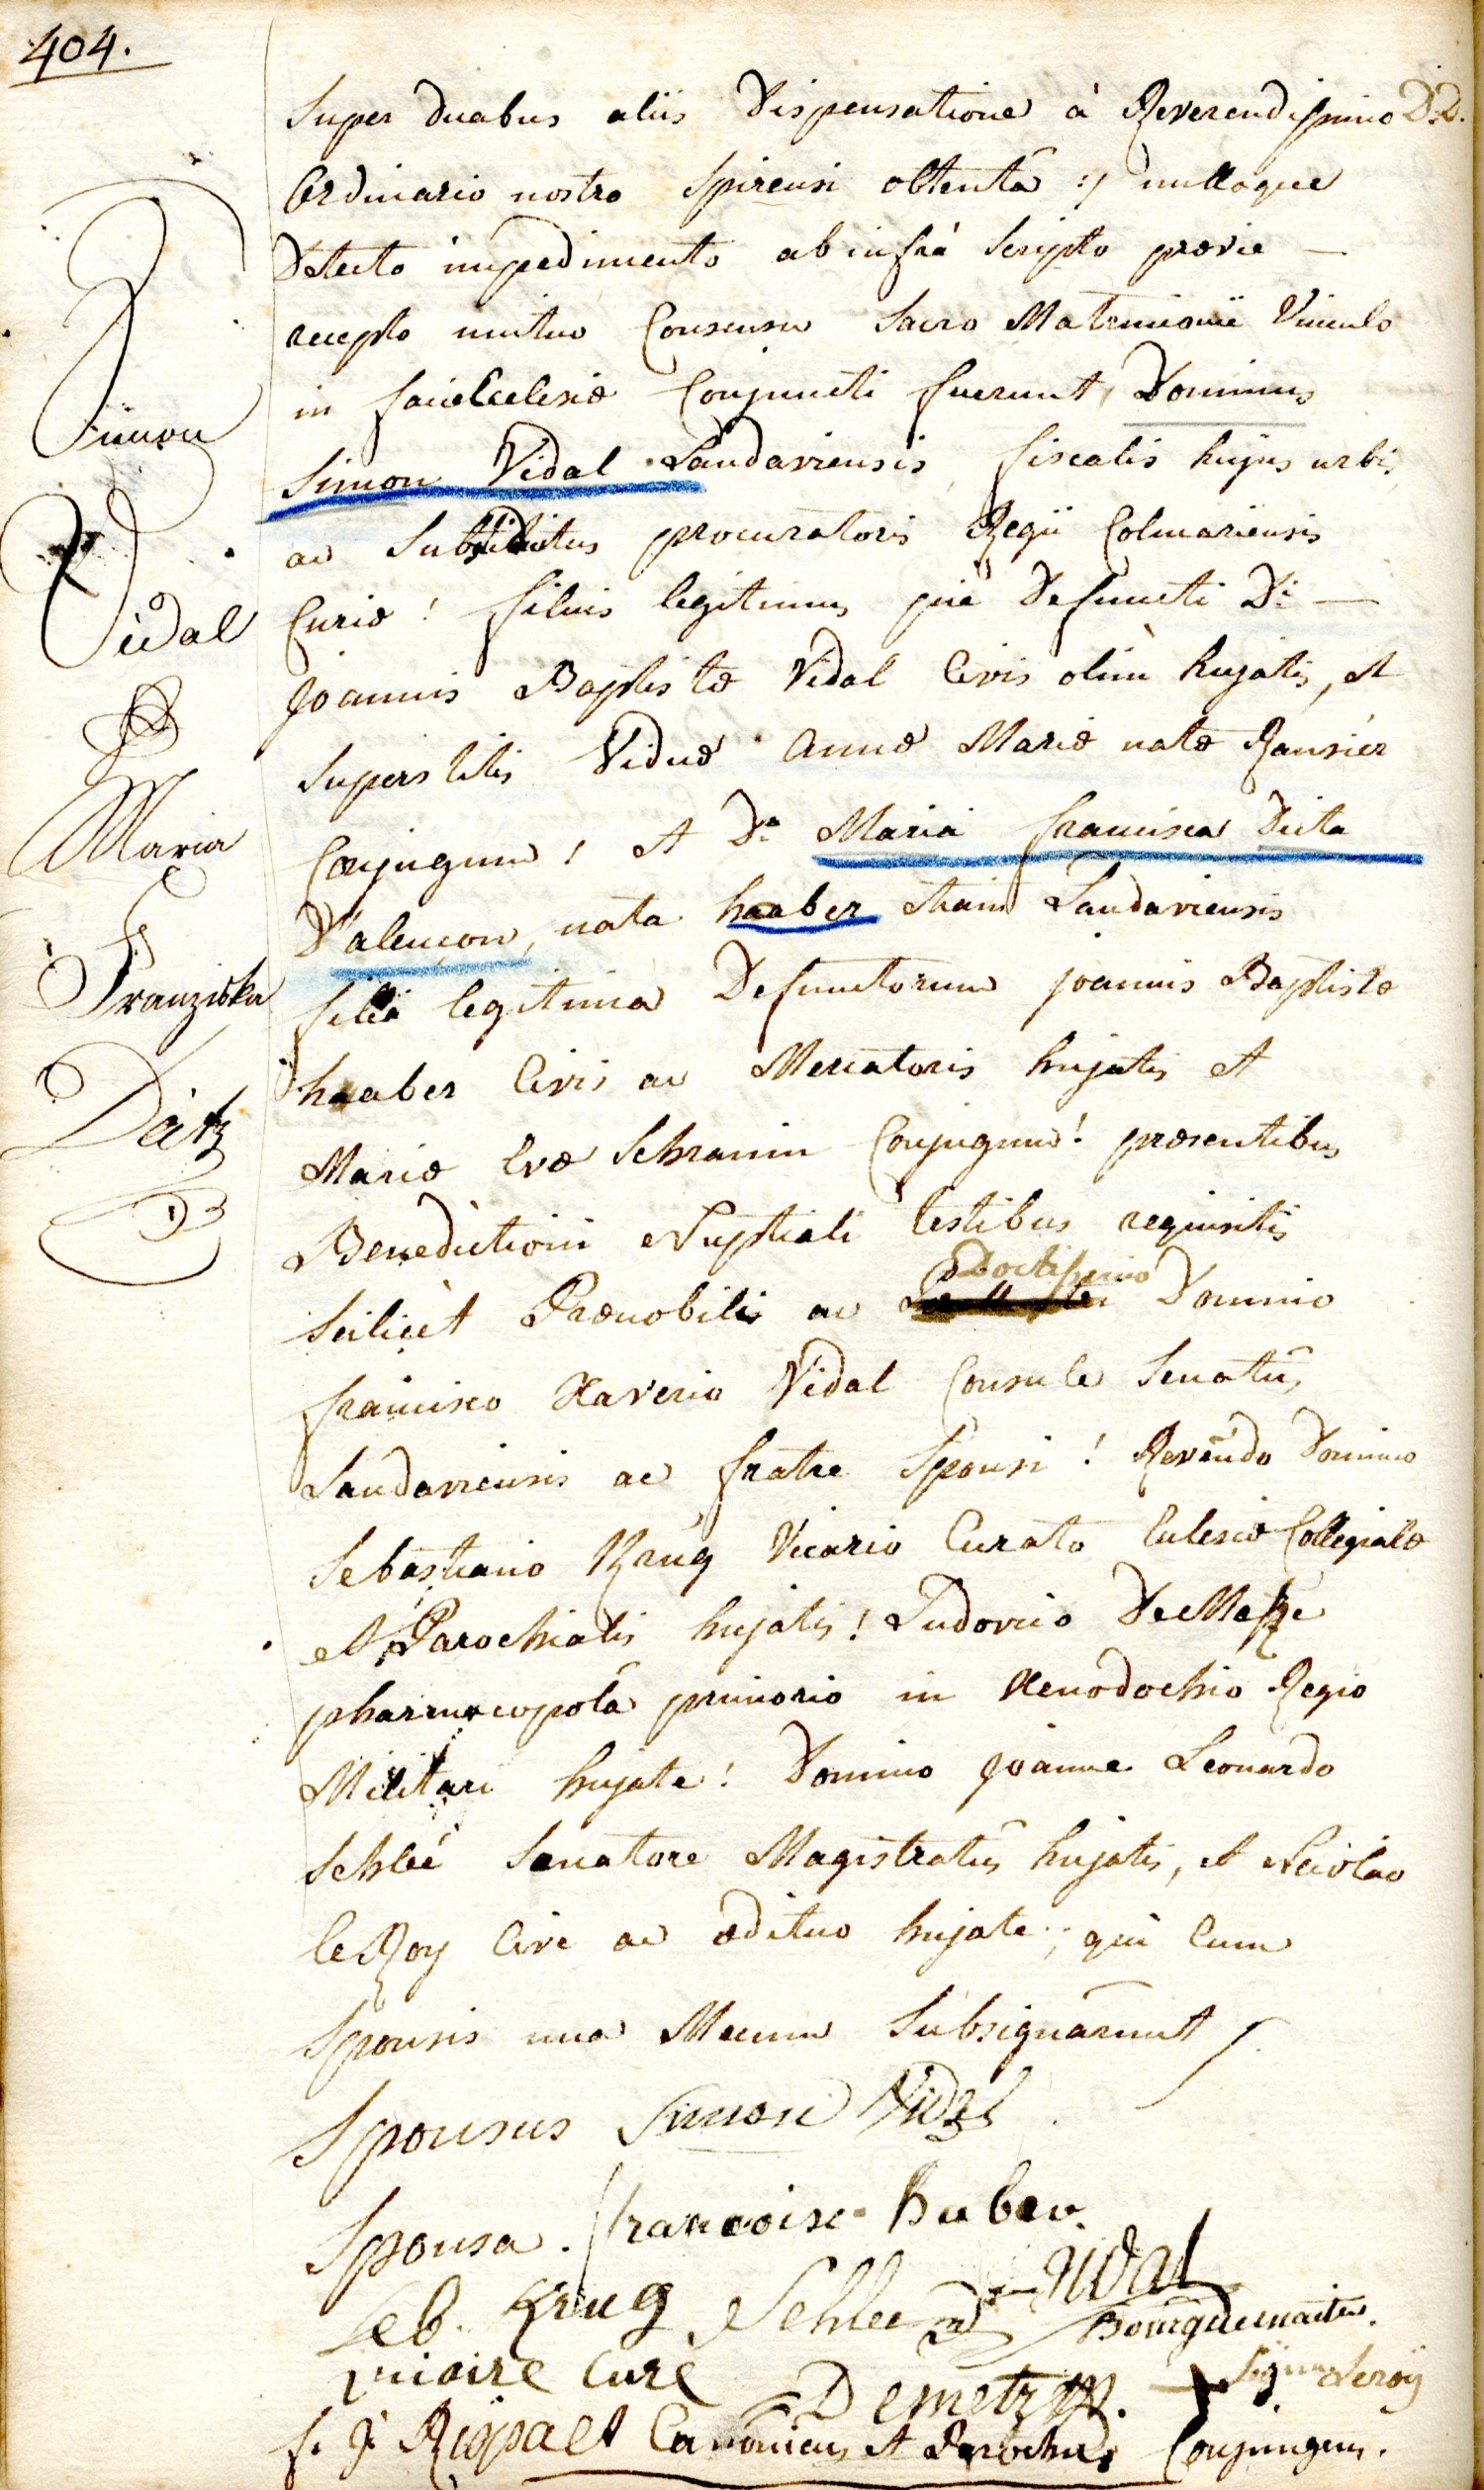 404.
Super duabus aliis dispensatione à Reverendissimo D.D.
Ordinario nostro Spirensi obtentâ :/ nulloque
detecto impedimento ab infrà Scripto prævie —
recepto mutuo Consensu Sacro Matrimonii Vinculo
in facie Ecclesiæ Conjuncti fuerunt, Dominus
Simon Vidal Landaviensis, fiscalis hujus urbis,
ac Substitutus procuratoris Regii Colmariensis
Curiæ! filius legitimus piè defuncti D:i —
Joannis Baptistæ Vidal Civis olim hujatis, et
Superstitis Viduæ Annæ Mariæ natæ Ransier
Conjugum! et D:a Maria francisca dicta
D'alençon, nata haaber etiam Landaviensis
filia legitima Defunctorum joannis Baptistæ
haaber Civis ac Mercatoris hujatis et
Mariæ Evæ Schramm Conjugum! præsentibus
Benedictioni Nuptiali testibus requisitis
Doctissimo
Scilicet Prænobilis ac Domino
francisco Xaverio Vidal Consule Senatûs
Landaviensis ac fratre Sponsi! Revendo Domino
Sebastiano Krug Vicario Curato Ecclesiæ Collegiatæ
et Parochialis hujatis! Ludovico DeMetze
pharmacopolâ primario in Xenodochio Regio
Militari hujate! Domino Joanne Leonardo
Schleé Senatore Magistratûs hujatis, et Nicolao
leRoy Cive ac ædituo hujate; qui cum
Sponsis una Mecum Subsignârunt
Sponsus Simon Vidal
Sponsa. francoise huber
Seb. Krug Schlee Vidal
Bourguemaitre.
vicaire Curé Demetz Signum Leroÿ
f. J. Rispalt Canonicus et Parochus Conjungens.
Simon
Vidal
&
Maria
Franziska